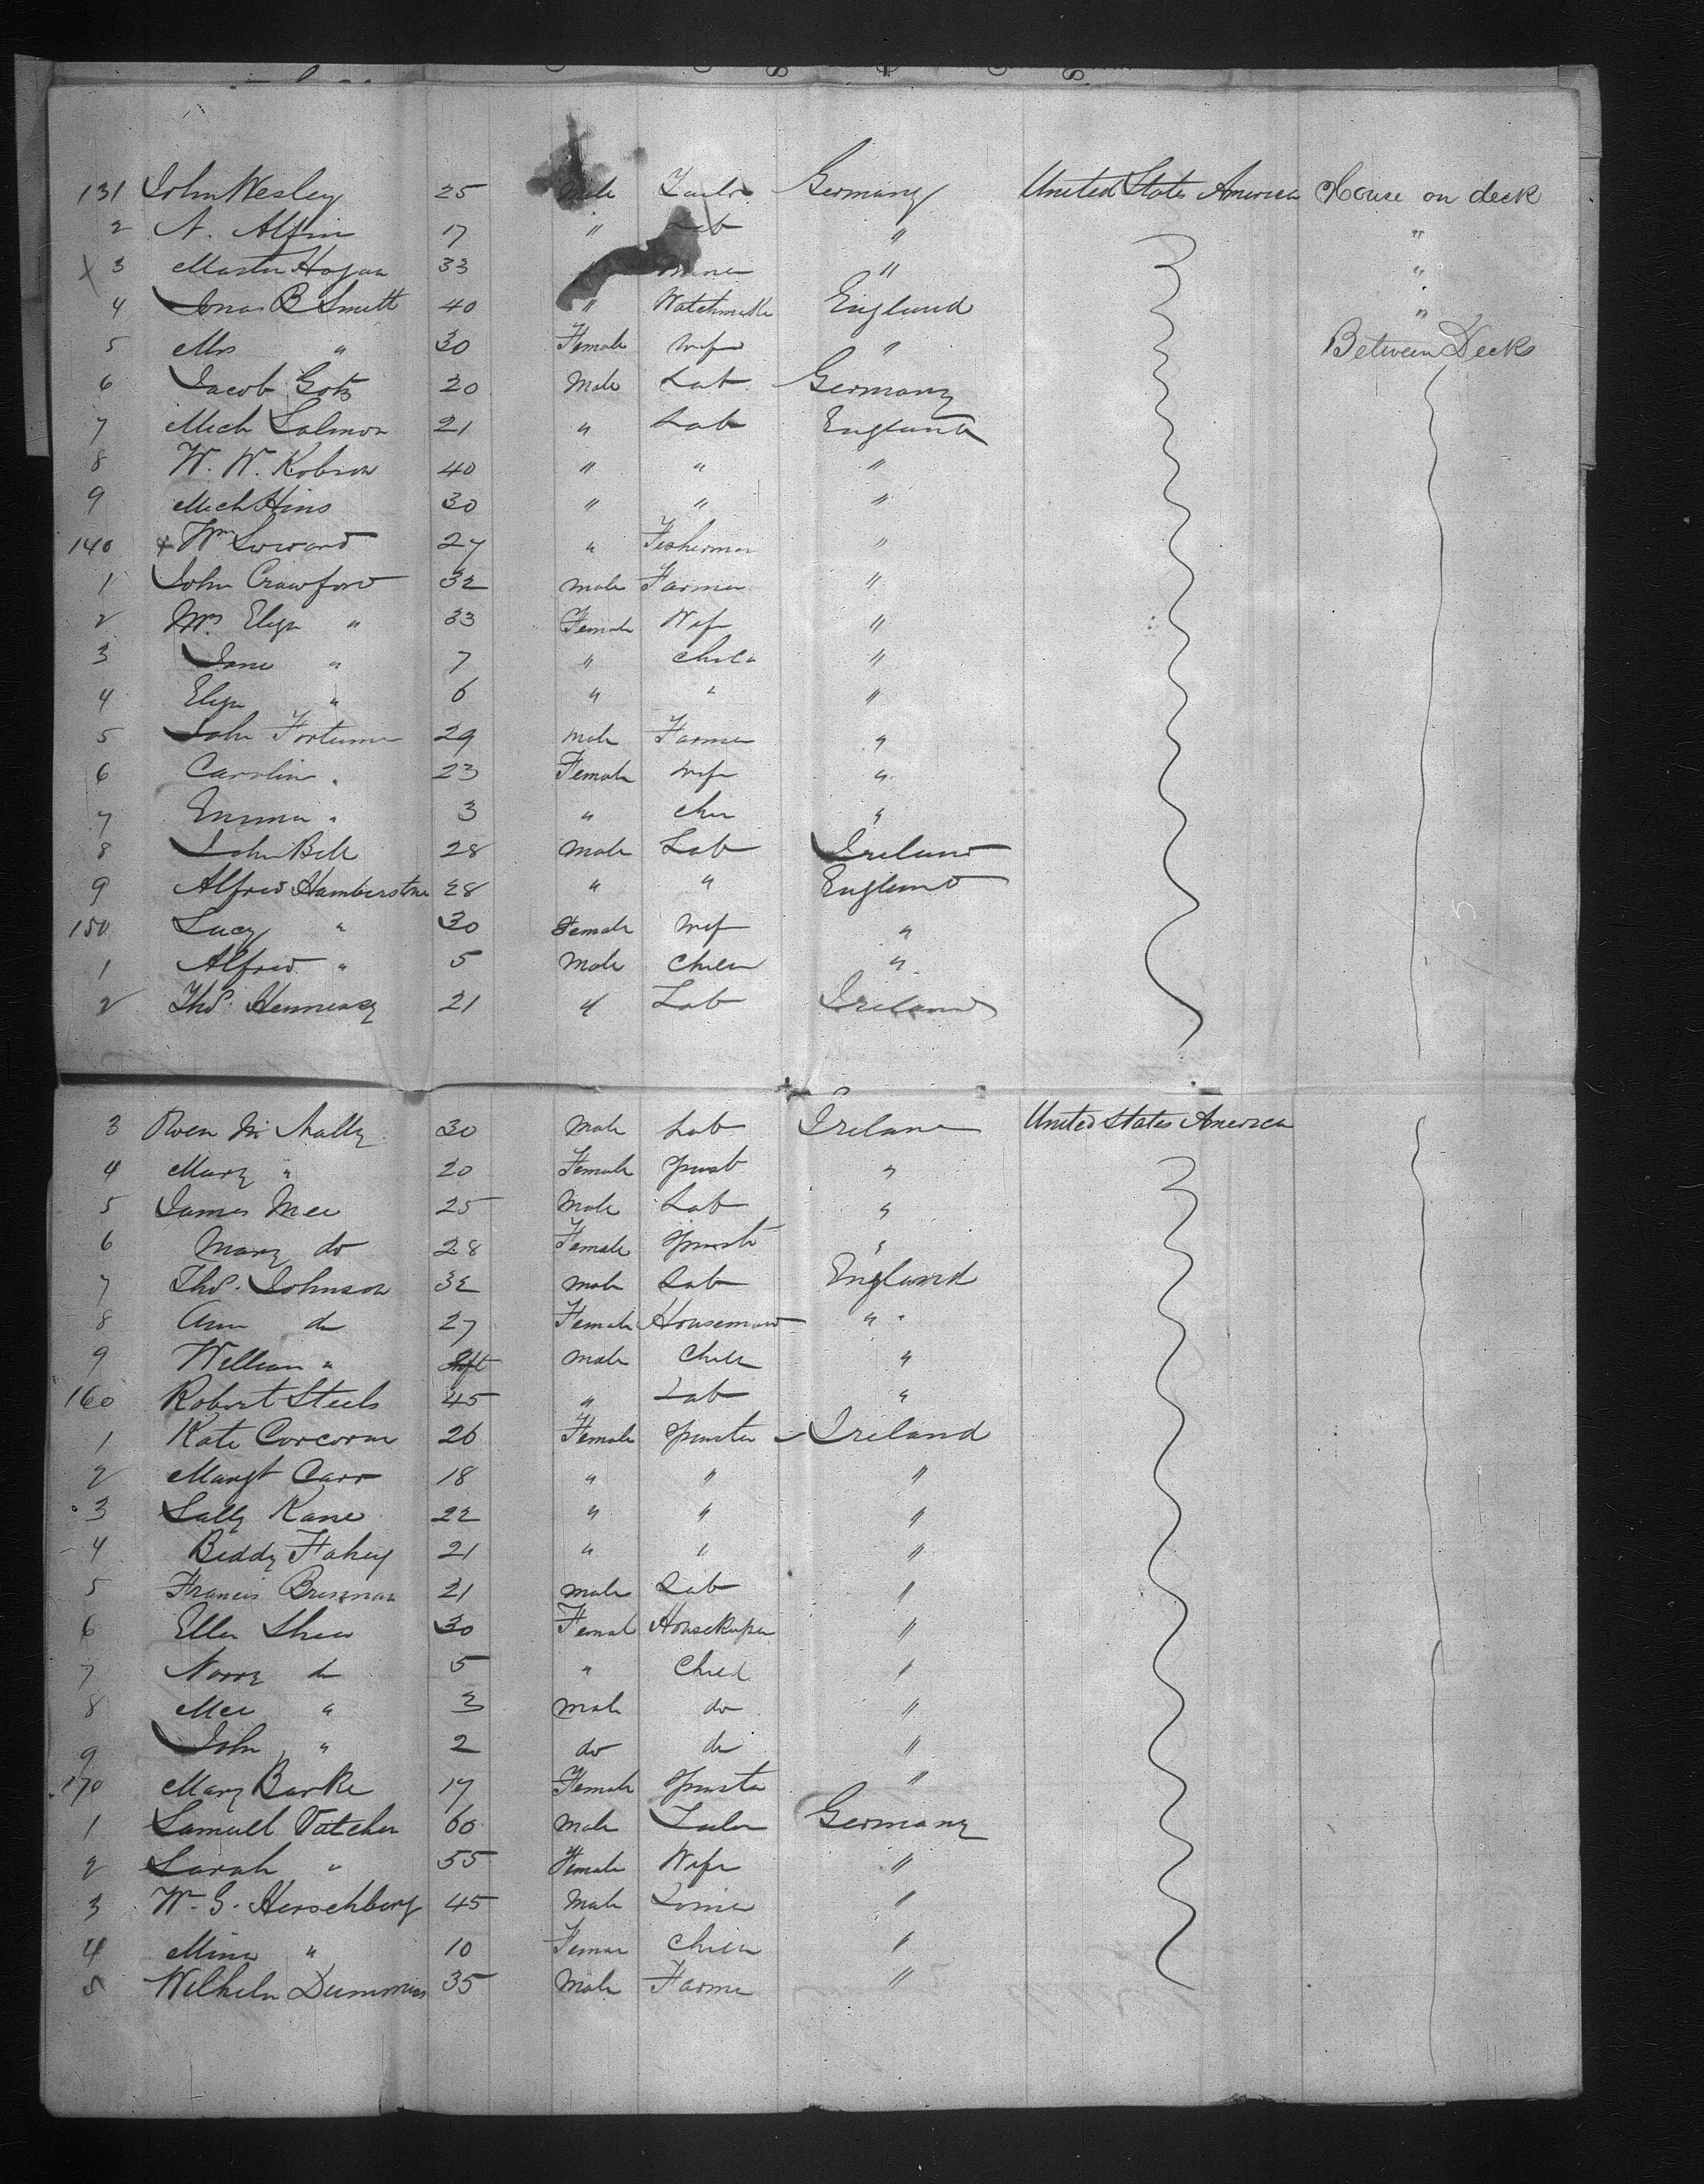 131 John Wesley 25 Male Tailor Germany United States America House on deck
2 N. Alfin 17 " Lab " "
3 Martin Hogan 33 " " "
4 Jonas B Smith 40 " Watchmaker England "
5 Mrs " 30 Female Wife " Between Decks
6 Jacob Gotz 20 Male Lab Germany
7 Mich Salmon 21 " Lab England
8 W. W. Robson 40 " " "
9 Mich Hins 30 " " "
140 Wm 27 " Fisherman "
1 John Crawford 32 male Farmer "
2 Mrs Eliza " 33 Female Wife "
3 Jane " 7 " child "
4 Eliza " 6 " " "
5 John Fortune 29 male Farmer "
6 Carolin " 23 Female wife "
7 Emma " 3 " "
8 John Bell 28 male Lab Ireland
9 Alfred Hamberstone 28 " " England
150 Lucy " 30 Female Wife "
1 Alfred " 5 Male Child "
2 Thos. Hennessy 21 " Lab Ireland
3 Owen Mc Nally 30 Male Lab Ireland United States America
4 Mary " 20 Female spinst "
5 James Mee 25 Male Lab "
6 Mary do 28 Female spinst "
7 Thos. Johnson 32 male Lab England
8 Ann do 27 Female Housemaid "
9 William " Inft male Child "
160 Robert Steels 45 " Lab "
1 Kate Corcoran 26 Female spinster Ireland
2 Margt Carr 18 " " "
3 Sally Kane 22 " " "
4 Biddy Fahey 21 " " "
5 Francis Brennan 21 male Lab "
6 Ellen Shea 30 Female Housekeeper "
7 Norry do 5 " Child "
8 " 3 male do "
9 John " 2 do do "
170 Mary Burke 17 Female spinster "
1 Samuell Vatcher 60 male Germany
2 Sarah " 55 Female Wife "
3 W. G. Herschberg 45 Male "
4 Mina " 10 Female Child "
5 Wilhelm 35 Male Farmer "